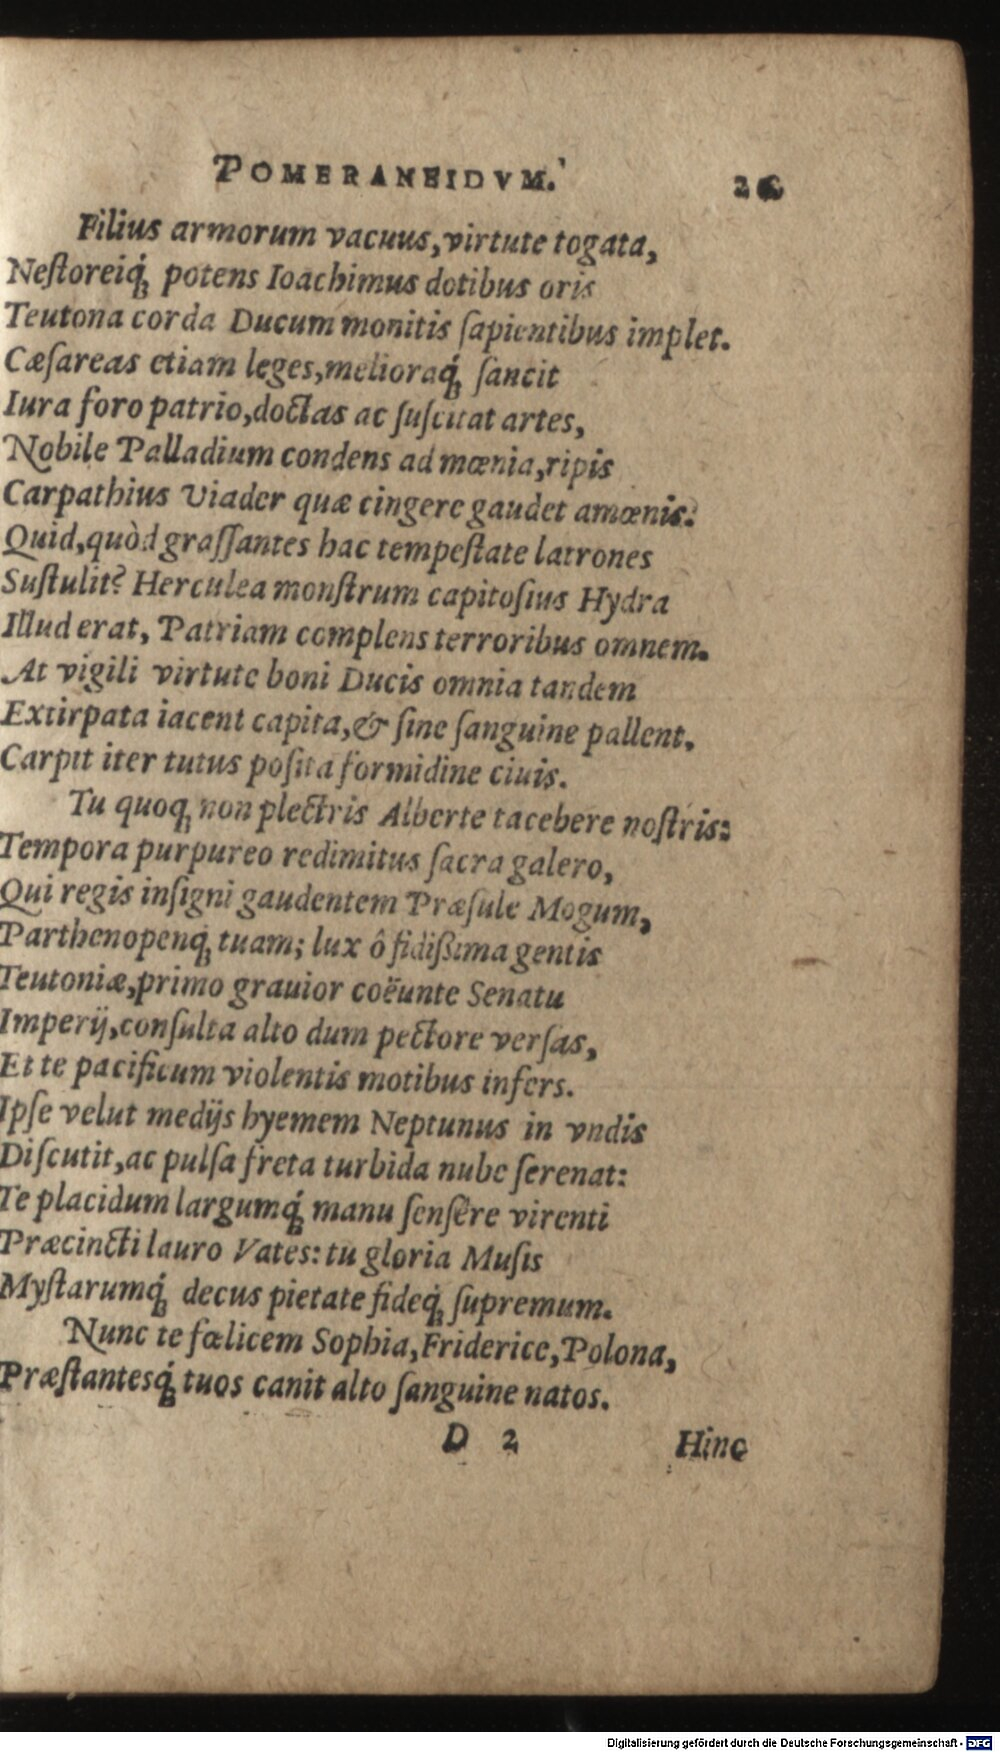 POMERANEIDVM.
Filius armorum vacuus, virtute togata,
Neſtoreiq́ꝫ potens Ioachimus dotibus oris
Teutona corda Ducum monitis ſapientibus implet.
Cæſareas etiam leges, melioraq́ꝫ ſancit
Iura foro patrio, doctas ac ſuſcitat artes,
Nobile Palladium condens ad mœnia, ripis
Carpathius Viader quæ cingere gaudet amœnis.
Quid, quòd graſſantes hac tempeſtate latrones
Suſtulit? Herculea monſtrum capitoſius Hydra
Illud erat, Patriam complens terroribus omnem.
At vigili virtute boni Ducis omnia tandem
Extirpata iacent capita, & ſine ſanguine pallent.
Carpit iter tutus poſita formidine ciuis.
Tu quoqꝫ non plectris Alberte tacebere noſtris:
Tempora purpureo redimitus ſacra galero,
Qui regis inſigni gaudentem Præſule Mogum,
Parthenopenqꝫ tuam; lux ô fidißima gentis
Teutoniæ, primo grauior coëunte Senatu
Imperij, conſulta alto dum pectore verſas,
Et te pacificum violentis motibus infers.
Ipſe velut medijs hyemem Neptunus in vndis
Diſcutit, ac pulſa freta turbida nube ſerenat:
Te placidum largumq́ꝫ manu ſenſêre virenti
Præcincti lauro Vates: tu gloria Muſis
Myſtarumq́ꝫ decus pietate fideq́ꝫ ſupremum.
Nunc te fœlicem Sophia, Friderice, Polona,
Præſtantesq́ꝫ tuos canit alto ſanguine natos.
D 2 Hinc
Digitalisierung gefördert durch die Deutsche Forschungsgemeinschaft - DFG